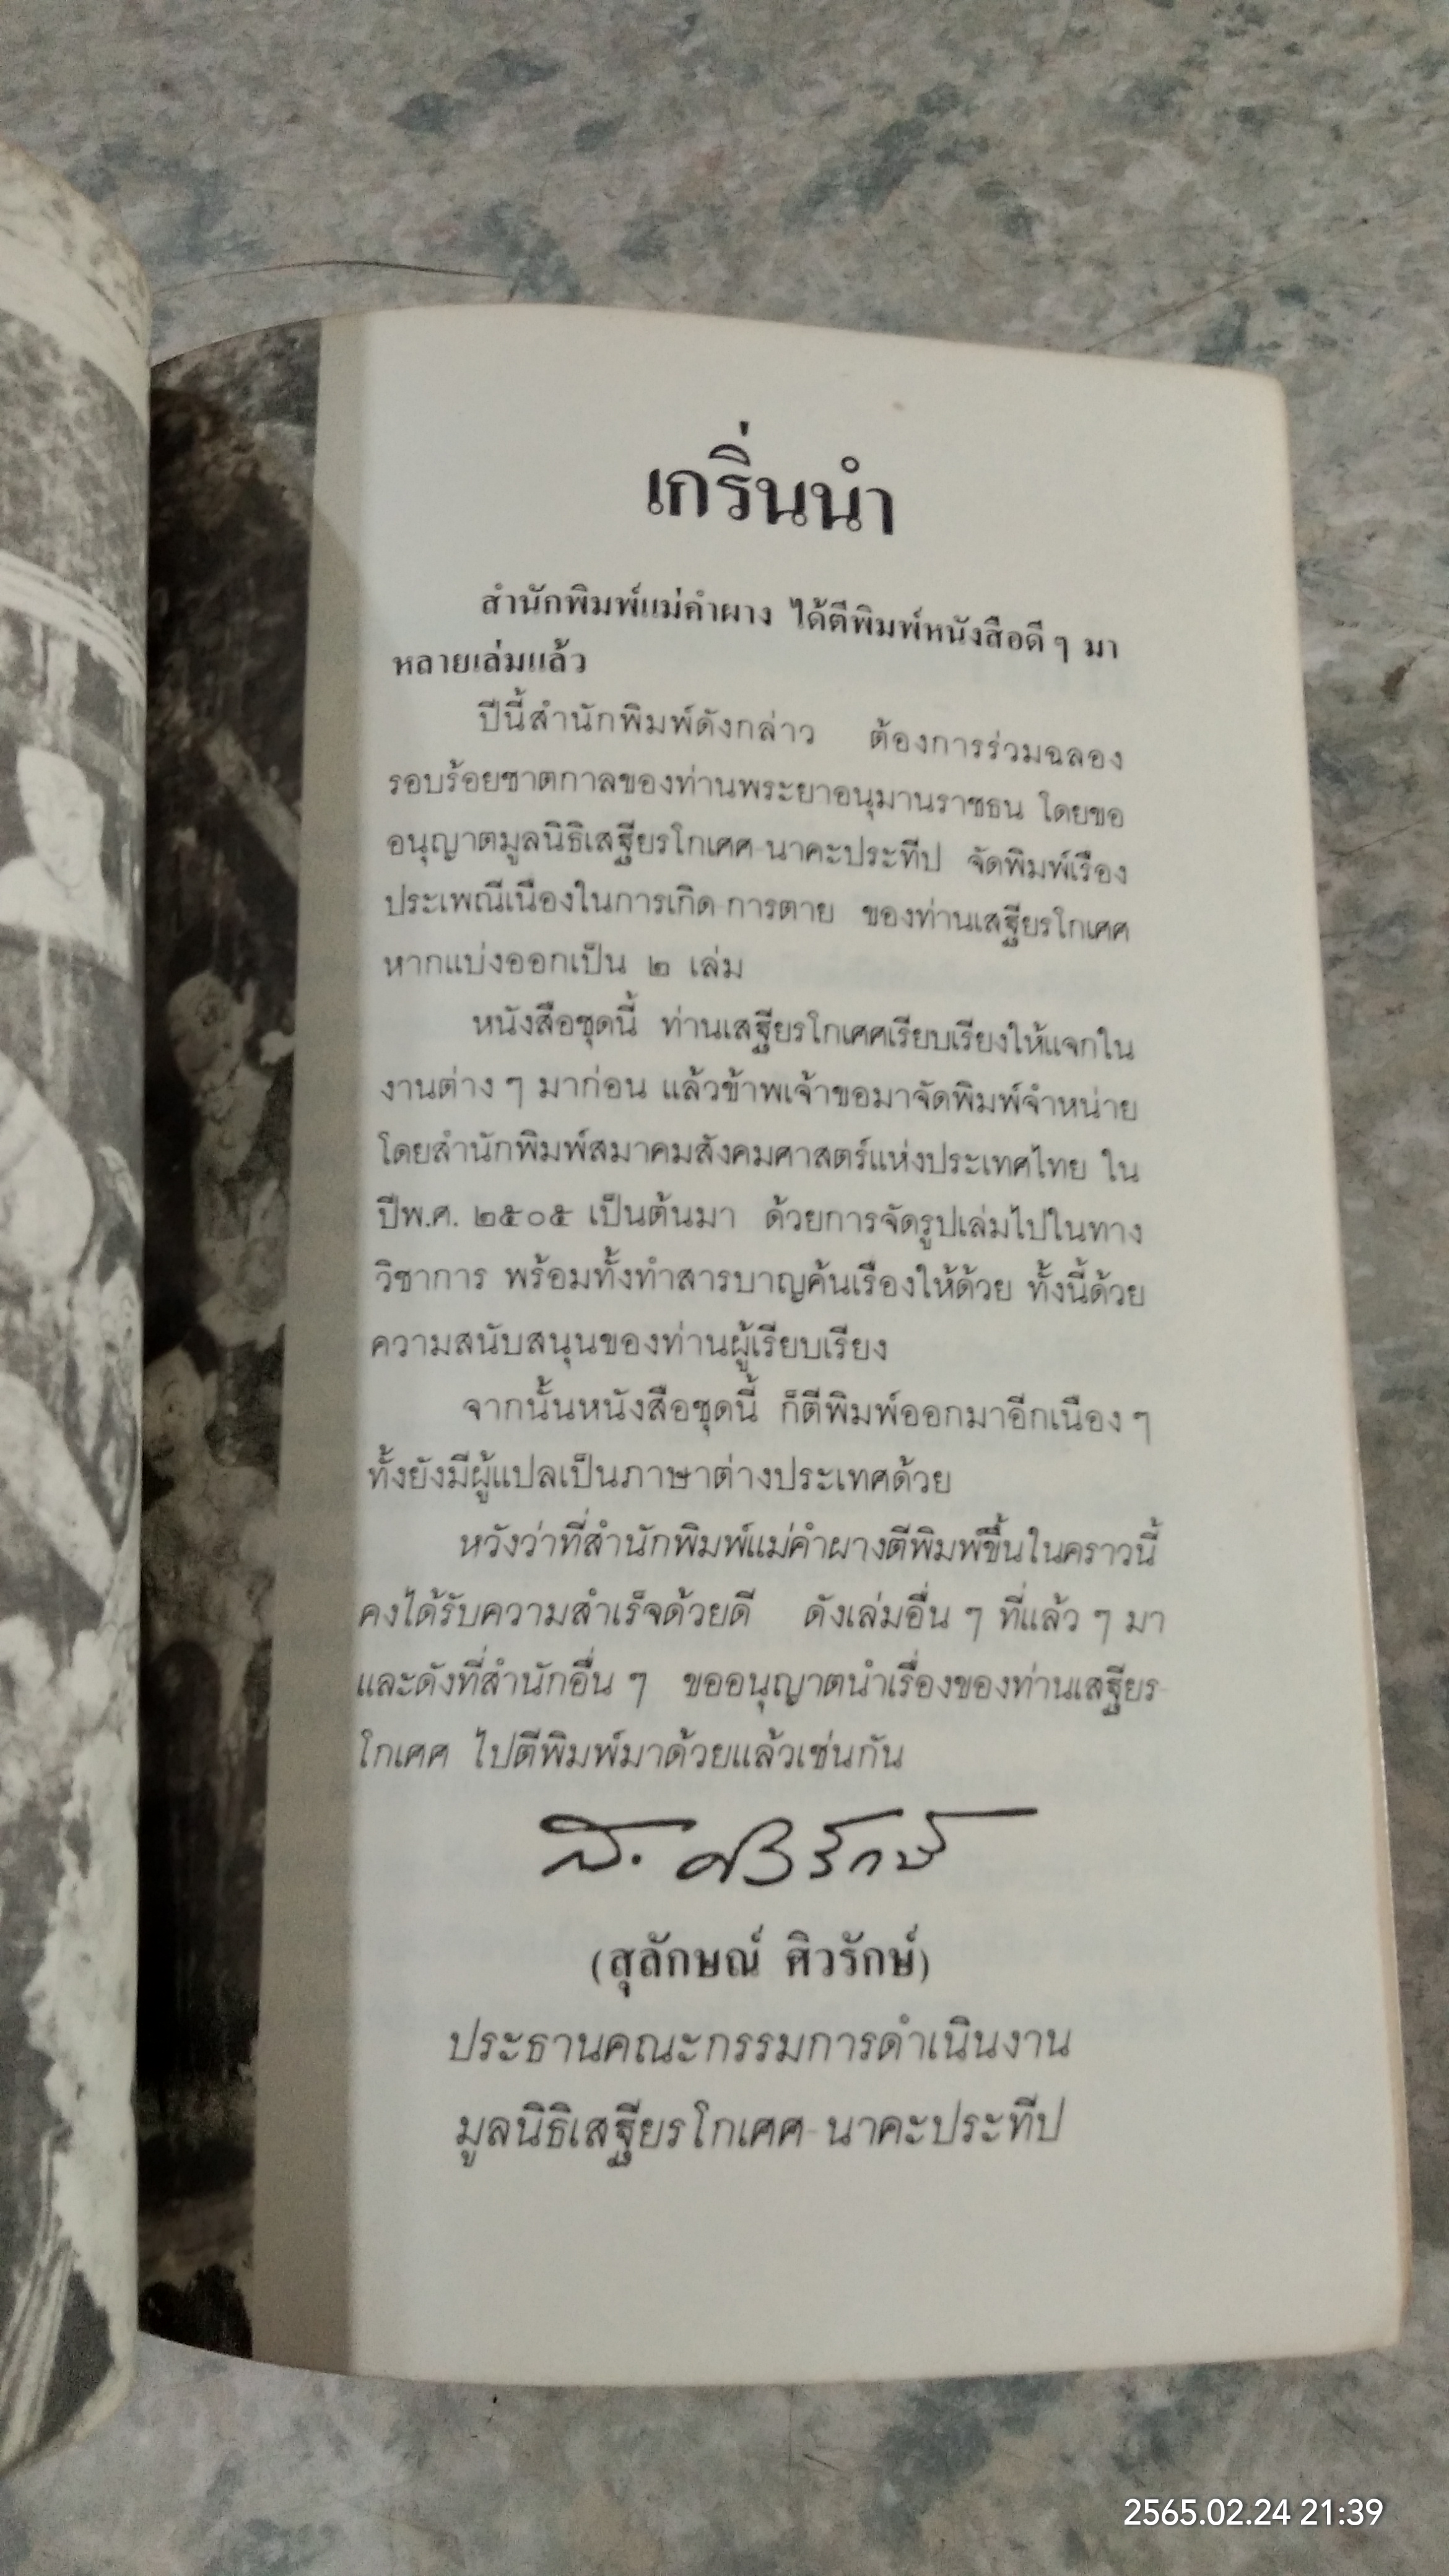 เกริ่นนำ
สำนักพิมพ์แม่คำผาง ได้ตีพิมพ์หนังสือดีๆ มา
หลายเล่มแล้ว
ปีนี้สำนักพิมพ์ดังกล่าว ต้องการร่วมฉลอง
รอบร้อยชาตกาลของท่านพระยาอนุมานราชธน โดยขอ
อนุญาตมูลนิธิเสฐียรโกเศศ-นาคะประทีป จัดพิมพ์เรื่อง
ประเพณีเนื่องในการเกิด-การตาย ของท่านเสฐียรโกเศศ
หากแบ่งออกเป็น ๒ เล่ม
หนังสือชุดนี้ ท่านเสฐียรโกเศศเรียบเรียงให้แจกใน
งานต่างๆ มาก่อน แล้วข้าพเจ้าขอมาจัดพิมพ์จำหน่าย
โดยสำนักพิมพ์สมาคมสังคมศาสตร์แห่งประเทศไทย ใน
ปีพ.ศ. ๒๕๐๕ เป็นต้นมา ด้วยการจัดรูปเล่มไปในทาง
วิชาการ พร้อมทั้งทำสารบาญค้นเรื่องให้ด้วย ทั้งนี้ด้วย
ความสนับสนุนของท่านผู้เรียบเรียง
จากนั้นหนังสือชุดนี้ ก็ตีพิมพ์ออกมาอีกเนืองๆ
ทั้งยังมีผู้แปลเป็นภาษาต่างประเทศด้วย
หวังว่าที่สำนักพิมพ์แม่คำผางตีพิมพ์ขึ้นในคราวนี้
คงได้รับความสำเร็จด้วยดี ดังเล่มอื่น ๆ ที่แล้ว ๆ มา
และดังที่สำนักอื่น ๆ ขออนุญาตนำเรื่องของท่านเสฐียร-
โกเศศ ไปตีพิมพ์มาด้วยแล้วเช่นกัน
ส. ศิวรักษ์
(สุลักษณ์ ศิวรักษ์)
ประธานคณะกรรมการดำเนินงาน
มูลนิธิเสฐียรโกเศศ-นาคะประทีป
2565.02.24 21:39